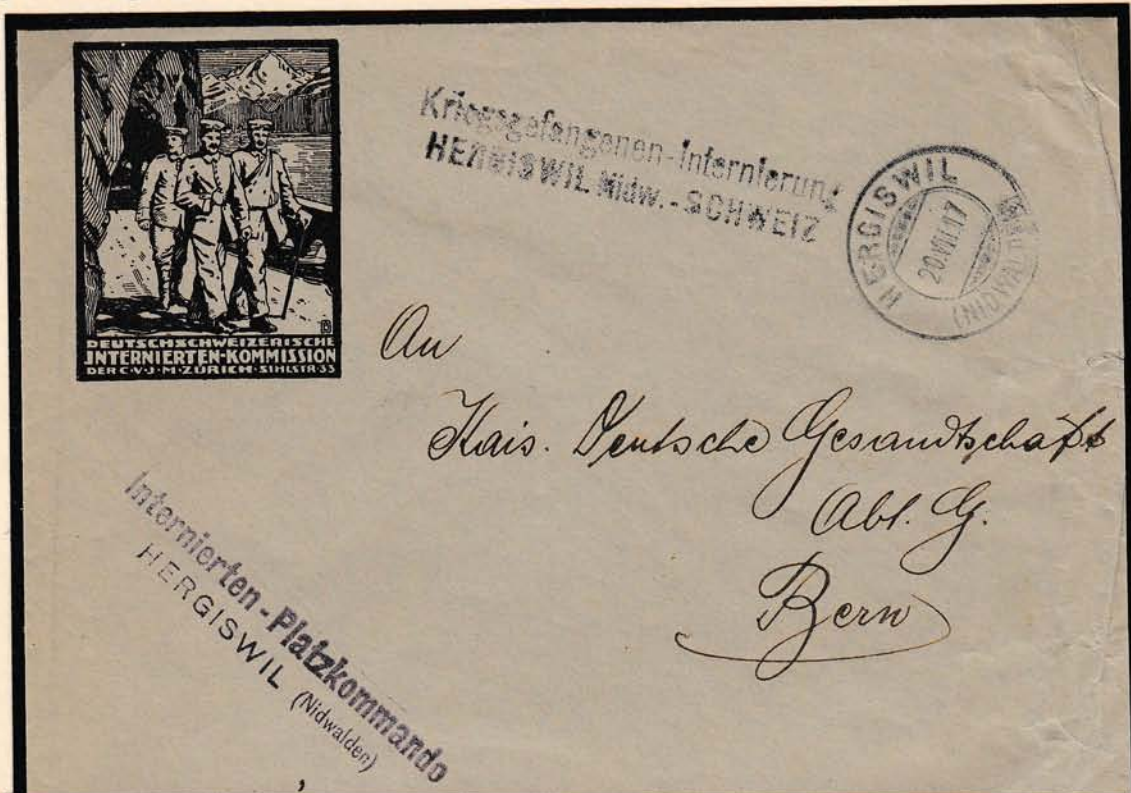 DEUTSCHSCHWEIZERISCHE
INTERNIERTEN-KOMMISSION
DER C·V·J·M·ZÜRICH·SIHLSTR·33
Kriegsgefangenen-Internierung
HERGISWIL Nidw. - SCHWEIZ
HERGISWIL
20.VIII.17
(NIDWALDEN)
An
Kais. Deutsche Gesandtschaft
Abt. G.
Bern
Internierten-Platzkommando
HERGISWIL (Nidwalden)